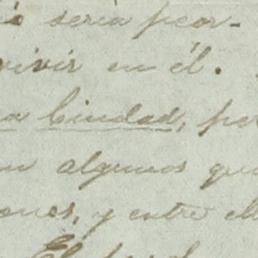 seria peor-
vivir en él.
la Ciudad, por
algunos que
ones, y entre
El